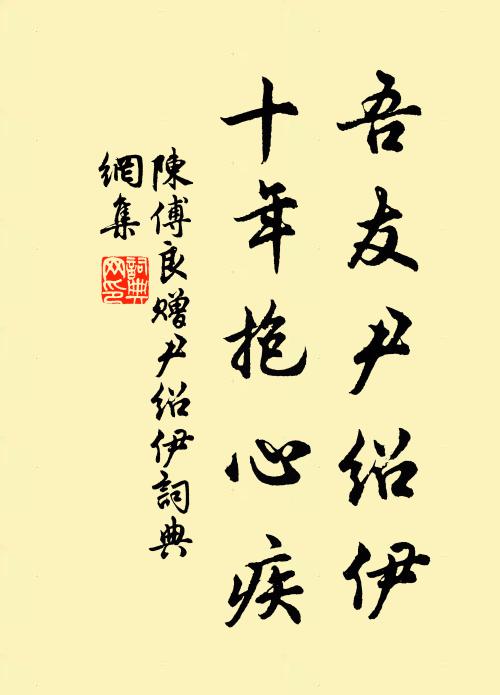 吾友尹绍伊
十年抱心疾
陳傅良赠尹绍伊詞典
網集
詞典網印